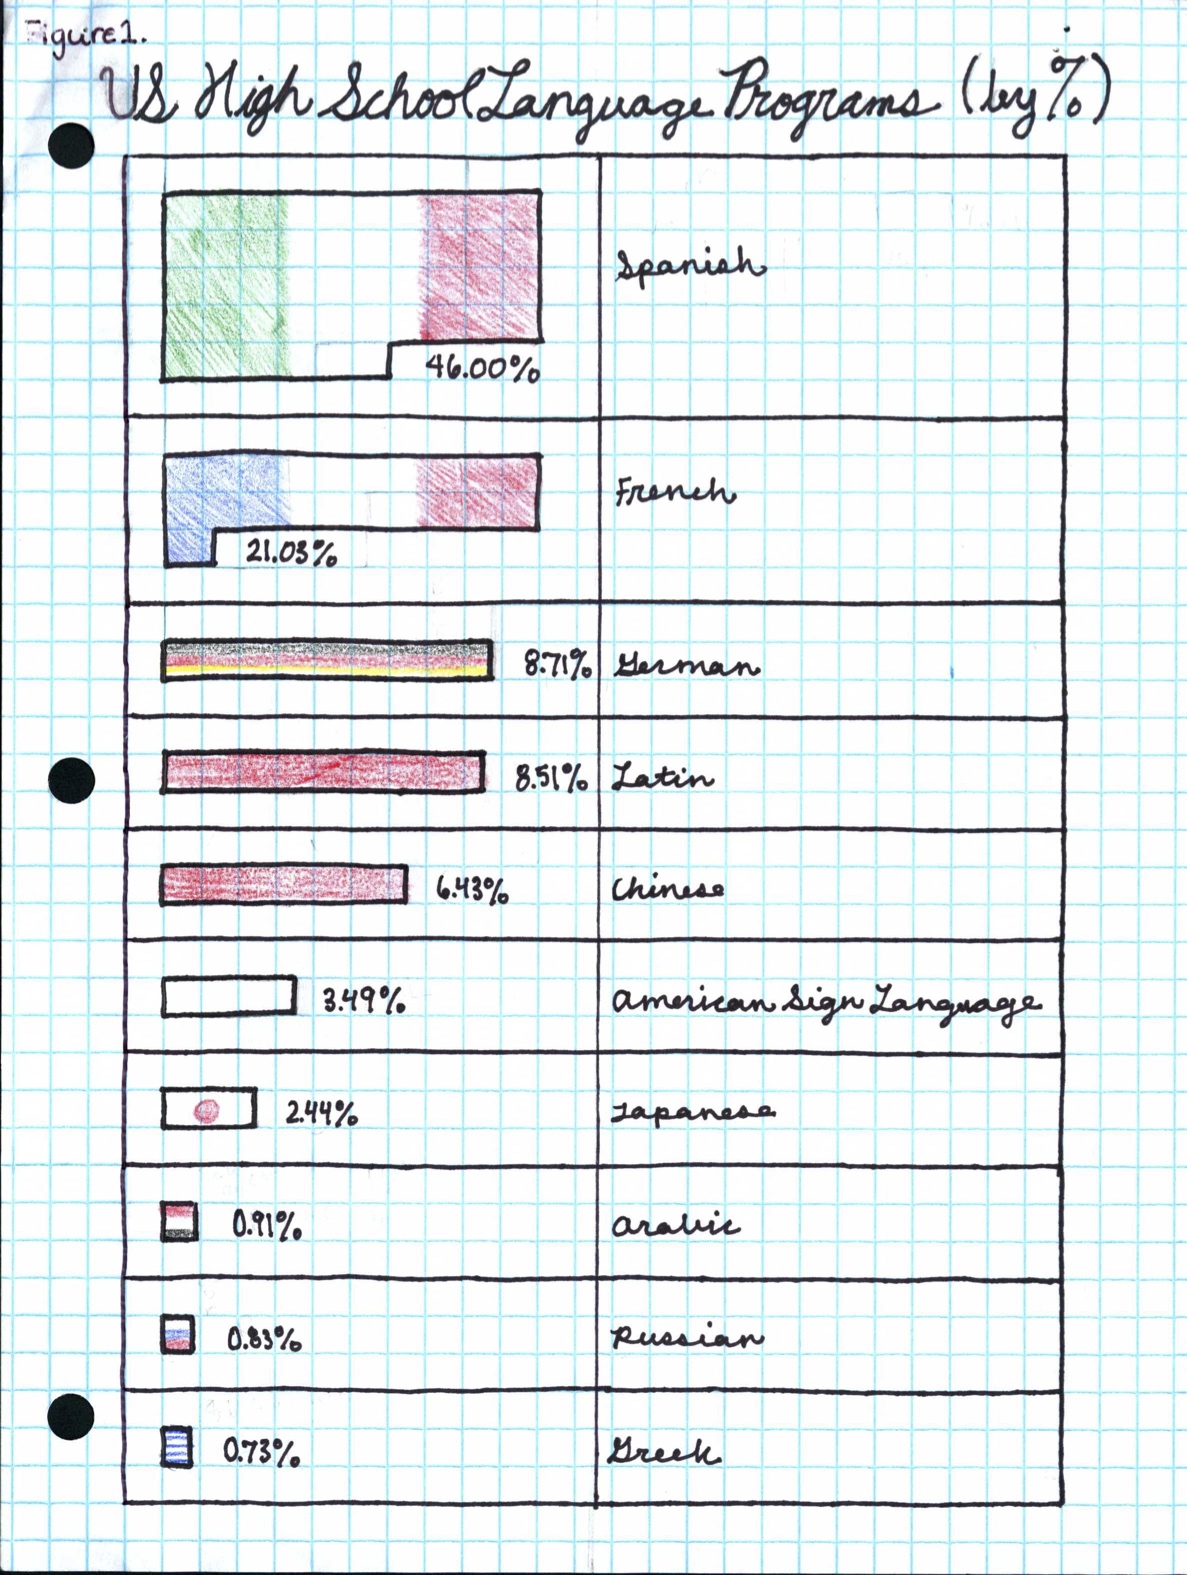 Figure 1.
US High School Language Programs (by %)
46.00% Spanish
21.03% French
8.71% German
8.51% Latin
6.43% Chinese
3.49% American Sign Language
2.44% Japanese
0.91% Arabic
0.83% Russian
0.73% Greek